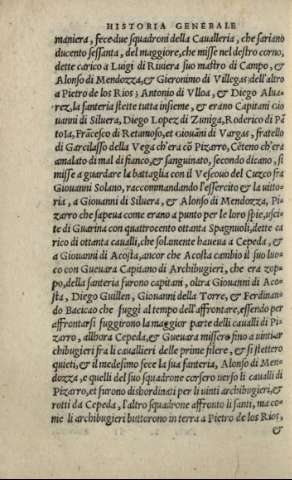 HISTORIA GENERALE
maniera, fece due squadroni della Caualleria, che sariano
ducento sessanta, del maggiore, che misse nel destro corno,
dette carico a Luigi di Riuiera suo mastro di Campo, &
Alonso di Mendozza, & Gieronimo di Villegas; dell'altro
a Pietro de los Rios; Antonio di Vlloa, & Diego Alua-
rez, la fanteria stette tutta insieme, & erano Capitani Gio
uanni di Siluera, Diego Lopez di Zuniga, Roderico di Pā
toia, Frācesco di Retamoso, et Giouāni di Vargas, fratello
di Garcilasso della Vega ch'era cō Pizarro, Cēteno ch'era
amalato di mal di fianco, & sanguinato, secondo dicano, si
misse a guardare la battaglia con il Vescouo del Cuzco fra
Giouanni Solano, raccommandando l'essercito & la uitto-
ria, a Giouanni di Siluera, & Alonso di Mendozza, Pi-
zarro che sapeua come erano a punto per le loro spie, usci-
te di Guarina con quattrocento ottanta Spagnuoli, dette ca
rico di ottanta caualli, che solamente haueua a Cepeda, &
a Giouanni di Acosta, ancor che Acosta cambio il suo luo-
co con Gueuara Capitano di Archibugieri, che era zop-
po, della fanteria furono capitani, oltra Giouanni di Aco-
sta, Diego Guillen, Giouanni della Torre, & Ferdinan-
do Bacicao che fuggì al tempo dell'affrontare, essendo per
affrontarsi fuggirono la maggior parte delli caualli di Pi-
zarro, allhora Cepeda, & Gueuara missero fino a uinti ar-
chibugieri fra li cauallieri delle prime filere, & si stettero
quieti, & il medesimo fece la sua fanteria, Alonso di Men-
dozza, e quelli del suo squadrone corsero uerso li caualli di
Pizarro, et furono disbordinati per li uinti archibugieri, &
rotti da Cepeda, l'altro squadrone affronto li fanti, ma co-
me li archibugieri buttorono in terra a Pietro de los Rios,
&